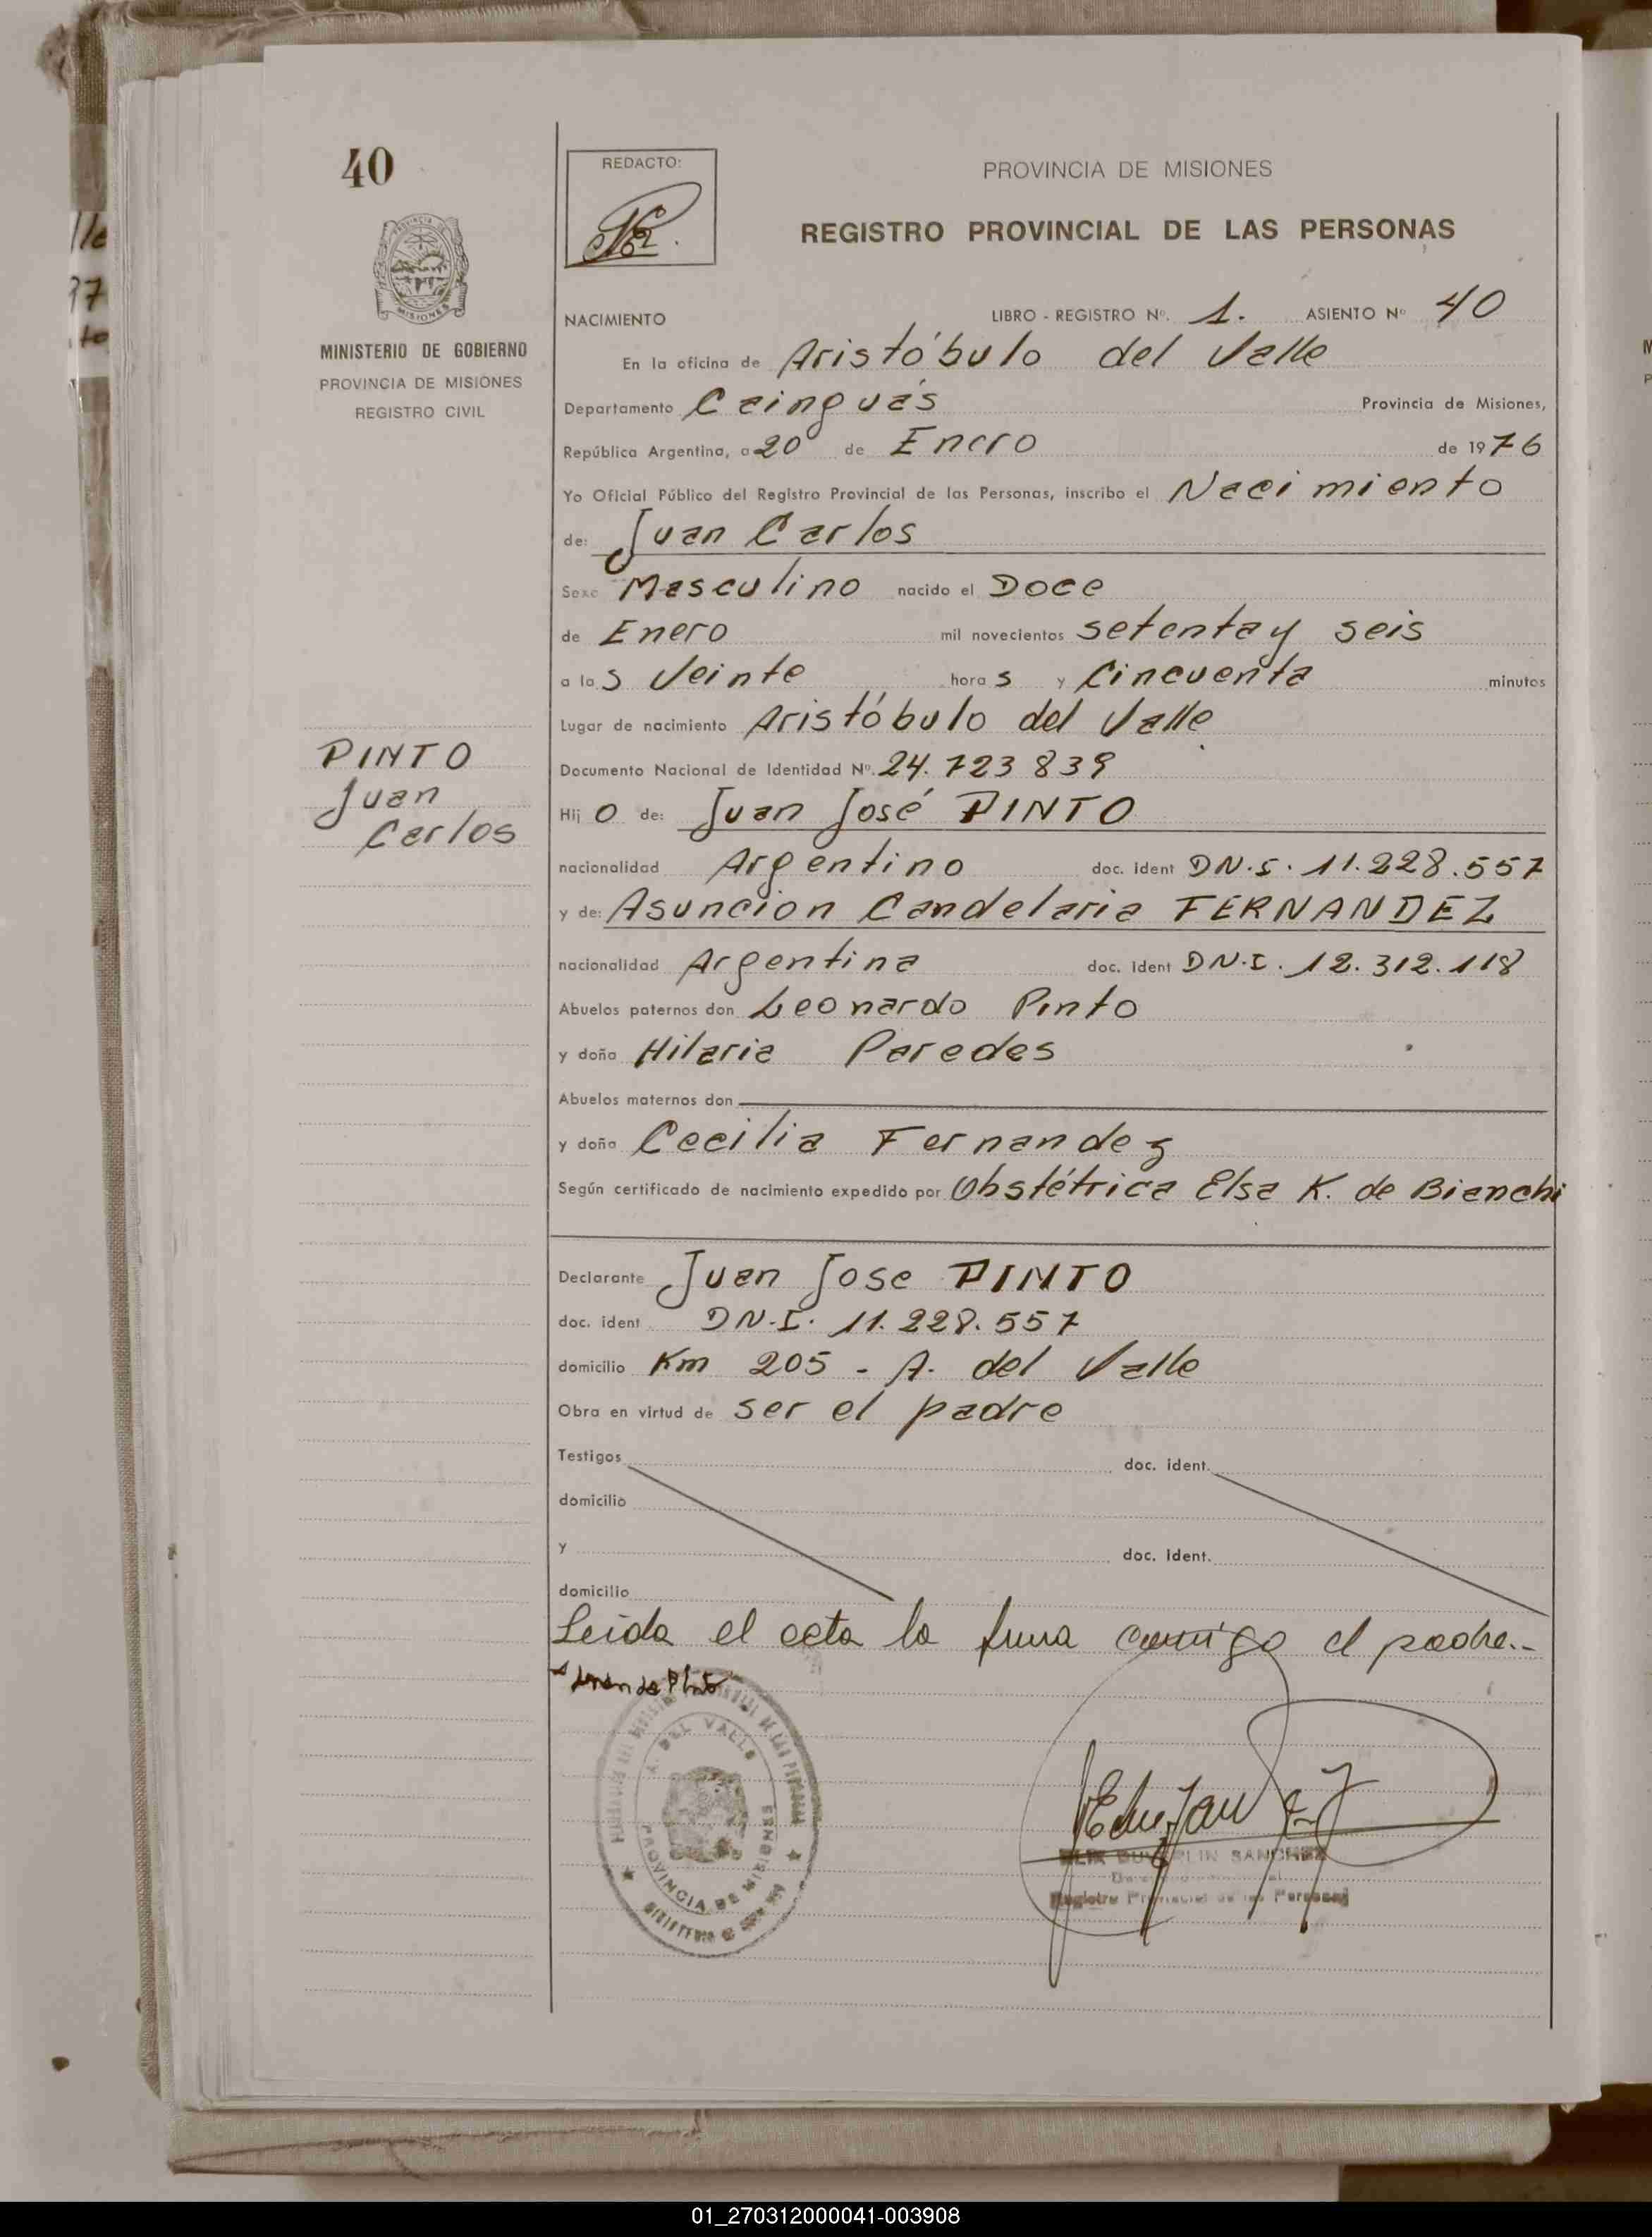 40
REDACTO:
PROVINCIA DE MISIONES
REGISTRO PROVINCIAL DE LAS PERSONAS
MISIONES
MINISTERIO DE GOBIERNO
PROVINCIA DE MISIONES
REGISTRO CIVIL
NACIMIENTO LIBRO - REGISTRO Nº. 1. ASIENTO Nº 40
En la oficina de Aristóbulo del Valle
Departamento Cainguás Provincia de Misiones,
República Argentina, a 20 de Enero de 1976
Yo Oficial Público del Registro Provincial de las Personas, inscribo el Nacimiento
de: Juan Carlos
Sexo Masculino nacido el Doce
de Enero mil novecientos setenta y seis
a las Veinte horas y Cincuenta minutos
Lugar de nacimiento Aristóbulo del Valle
PINTO
Juan
Carlos
Documento Nacional de Identidad Nº. 24.723839
Hijo de: Juan José PINTO
nacionalidad Argentino doc. ident DN.I. 11.228.557
y de: Asuncion Candelaria FERNANDEZ
nacionalidad Argentina doc. ident DN.I. 12.312.118
Abuelos paternos don Leonardo Pinto
y doña Hilaria Paredes
Abuelos maternos don
y doña Cecilia Fernandez
Según certificado de nacimiento expedido por Obstétrica Elsa K. de Bianchi
Declarante Juan Jose PINTO
doc. ident DN.I. 11.228.557
domicilio Km 205 - A. del Valle
Obra en virtud de ser el padre
Testigos doc. ident.
domicilio
y doc. ident.
domicilio
Leida el acta la firma conmigo el padre.-
A. DEL VALLE
PROVINCIA DE MISIONES
SANCHEZ
Registro Provincial de las Personas
01_270312000041-003908